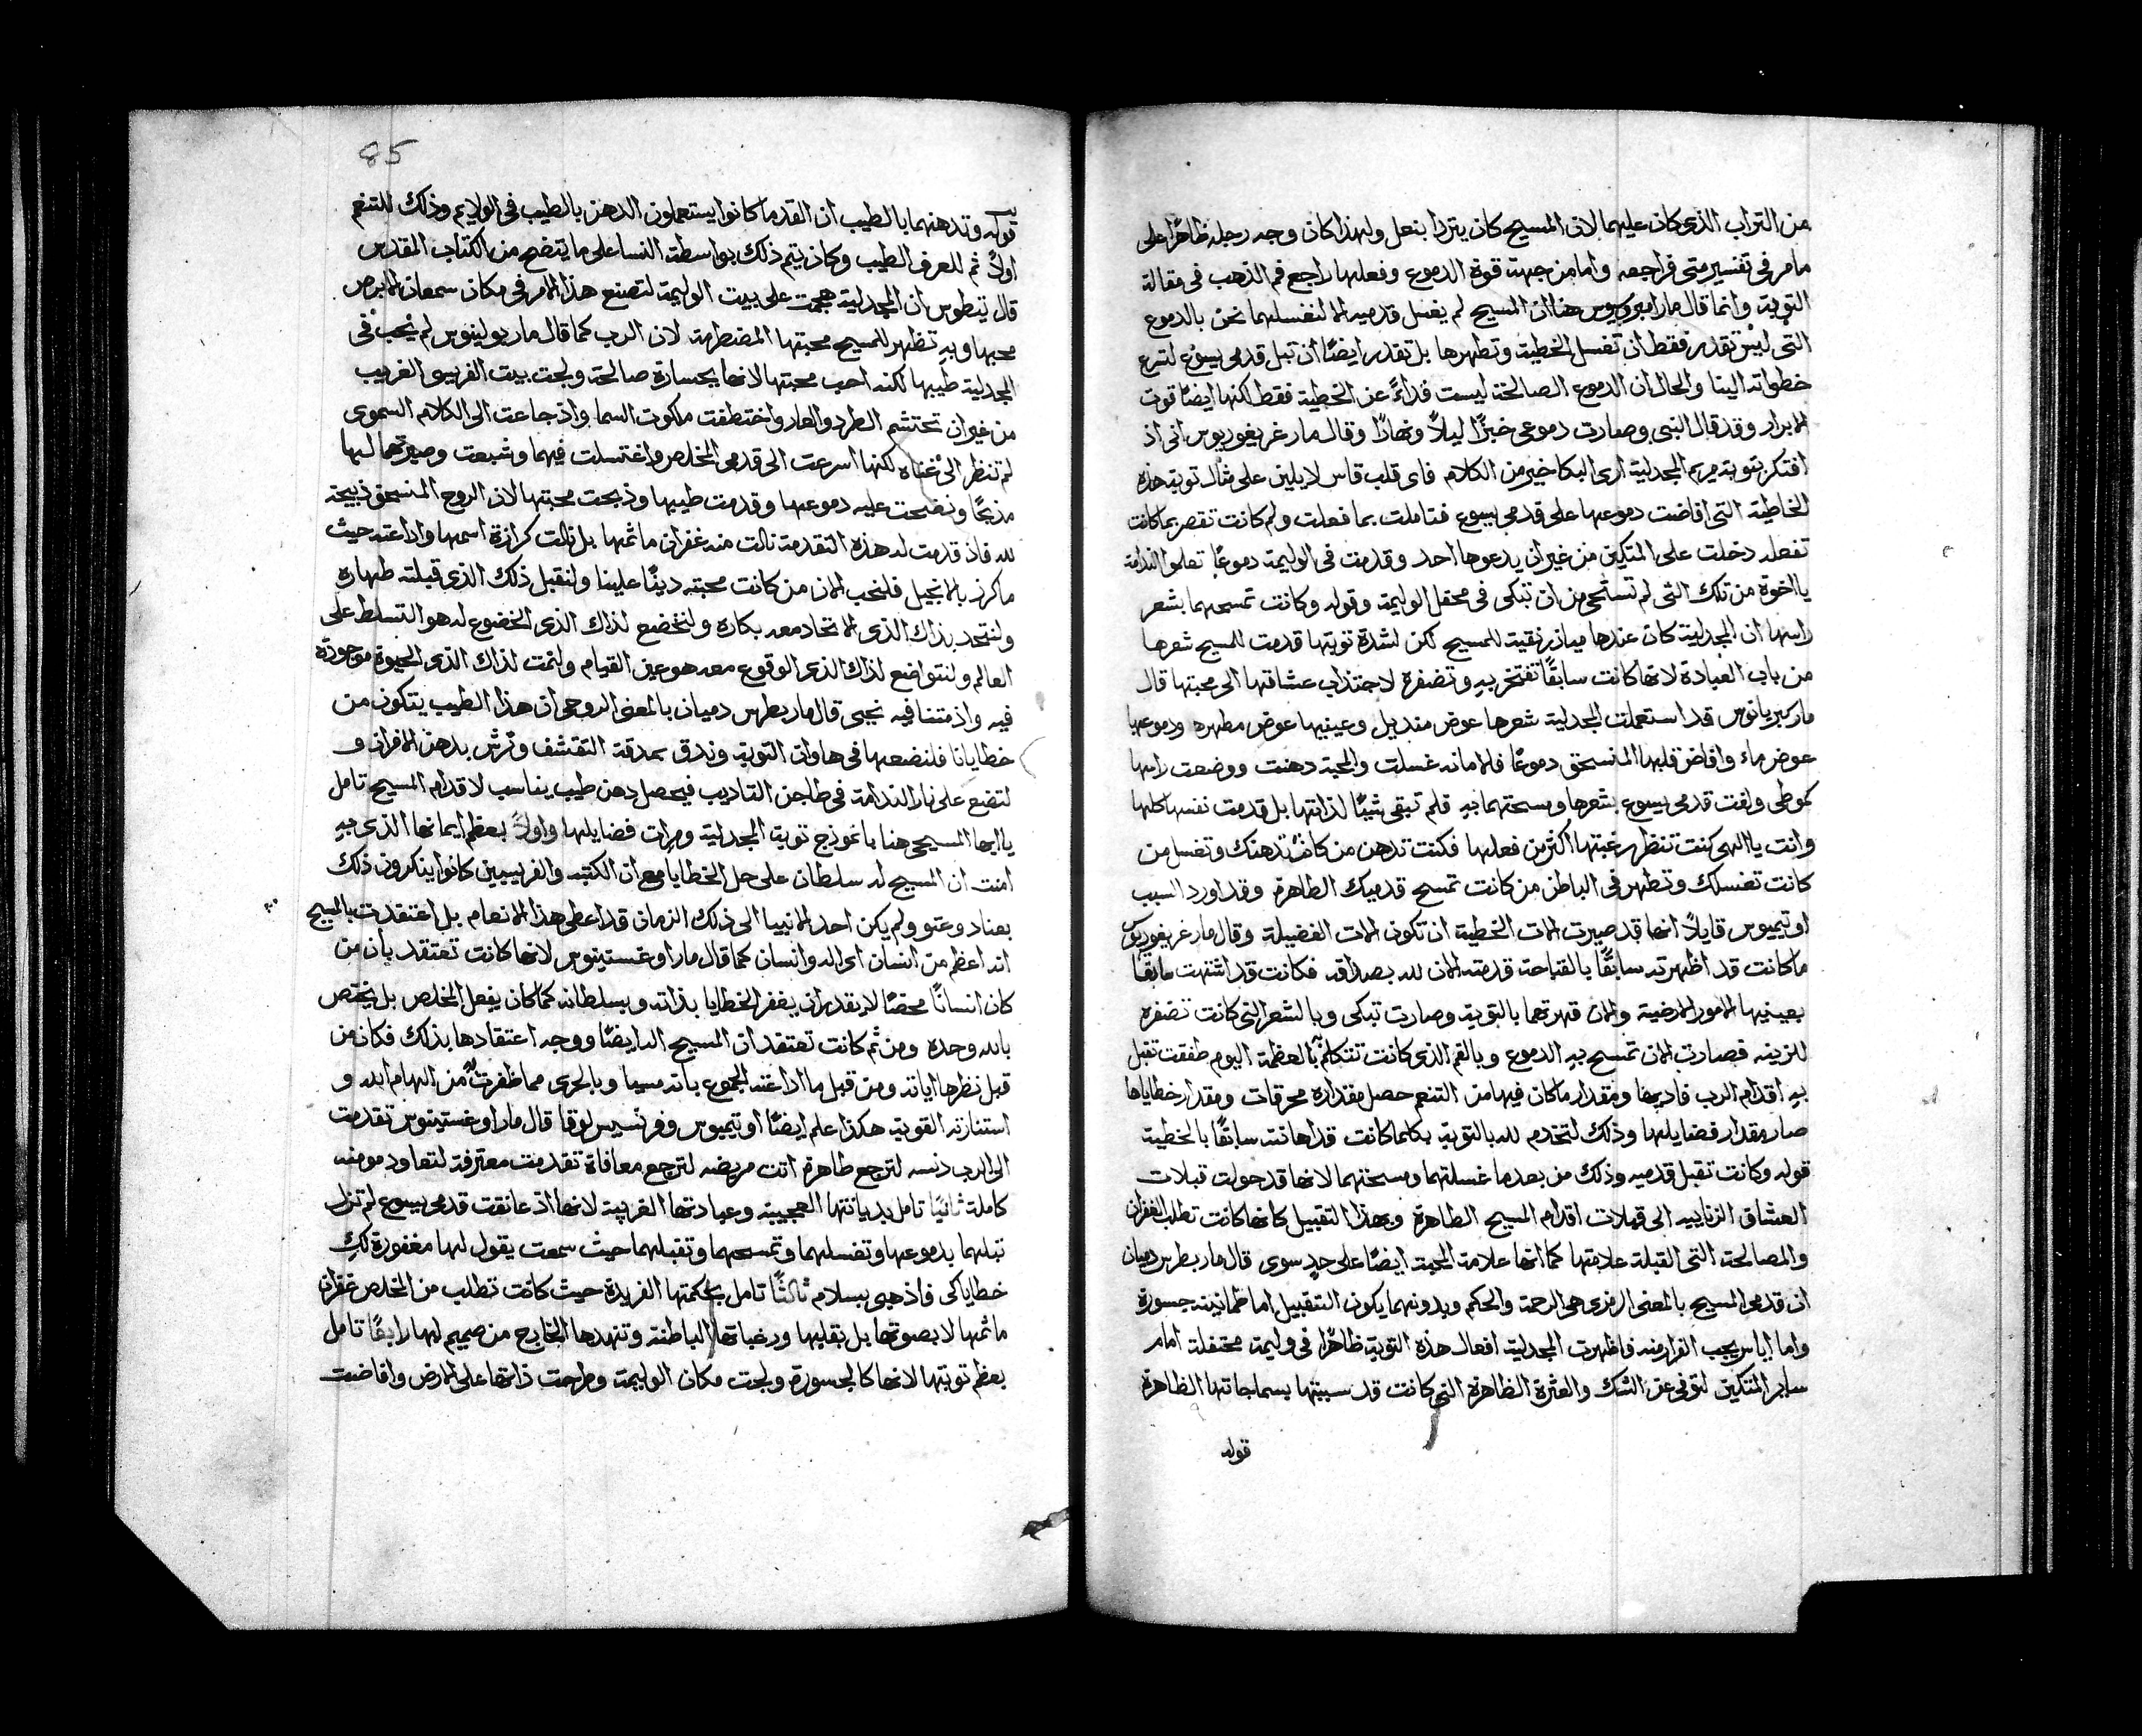 من التراب الذي كان عليهما لان المسيح كان يتردا بنعل ولهذا كان وجه رجله ظاهرًا على
ما مر في تفسير متى فراجعه واما من جهة قوة الدموع وفعلها راجع فم الذهب في مقالة
التوبة وانما قال مار امبروسيوس هنا ان المسيح لم يغسل قدميه الا لنغسلهما نحن بالدموع
التي ليس تقدر فقط ان تغسل الخطية وتطهرها بل تقدر ايضًا ان تبل قدمي يسوع لتسرع
خطواته الينا والحال ان الدموع الصالحة ليست فداءً عن الخطية فقط لكنها ايضًا قوت
الابرار وقد قال النبي وصارت دموعي خبزًا ليلاً ونهارًا وقال مار غريغوريوس اني اذ
افتكر بتوبة مريم المجدلية ارى البكا خير من الكلام فاي قلب قاس لا يلين على مثال توبة هذه
الخاطية التي افاضت دموعها على قدمي يسوع فتاملت بما فعلت ولم كانت تقصر بما كانت
تفعله دخلت على المتكين من غير ان يدعوها احد وقدمت في الوليمة دموعًا تعلموا الندامة
يا اخوة من تلك التي لم تستحي من ان تبكي في محفل الوليمة وقوله وكانت تمسحهما بشعر
راسها ان المجدلية كان عندها ميازر نقية للمسيح لكن لشدة توبتها قدمت للمسيح شعرها
من باب العبادة لانها كانت سابقًا تفتخر به وتضفره لاجتذاب عشاقها الى محبتها قال
مار كبريانوس قد استعملت المجدلية شعرها عوض منديل وعينيها عوض مطهره ودموعها
عوض ماء وافاض قلبها المنسحق دموعًا فالامانه غسلت والمحبة دهنت ووضعت راسها
كموطي ولفت قدمي يسوع بشعرها ومسحتهما به فلم تبقي شيًا لذاتها بل قدمت نفسها كلها
وانت يا الهي كنت تنظر رغبتها اكثر من فعلها فكنت تدهن من كانت تدهنك وتغسل من
كانت تغسلك وتطهر في الباطن من كانت تمسح قدميك الطاهرة وقد اورد السبب
اوتيميوس قايلاً انها قد صيرت الات الخطية ان تكون الات الفضيلة وقال مار غريغوريوس
ما كانت قد اظهرته سابقًا بالقباحة قدمته الان لله بصداقه فكانت قد اشتهت سابقًا
بعينيها الامور الارضية والان قهرتهما بالتوبة وصارت تبكي وبالشعر التي كانت تضفره
للزينه فصارت الان تمسح به الدموع وبالفم الذي كانت تتكلم بالعظمة اليوم طفقت تقبل
به اقدام الرب فاديها ومقدار ما كان فيها من التنعم حصل مقداره محرقات ومقدار خطاياها
صار مقدار فضايلها وذلك لتخدم لله بالتوبة بكلما كانت قد اهانته سابقًا بالخطية
قوله وكانت تقبل قدميه وذلك من بعد ما غسلتهما ومسحتهما لانها قد حولت قبلات
العشاق الزنايية الى قبلات اقدام المسيح الطاهرة وبهذا التقبيل كانها كانت تطلب الغفران
والمصالحة التي القبلة علامتها كما انها علامة المحبة ايضًا على حدٍ سوى قال مار بطرس دميان
ان قدمي المسيح بالمعنى الرمزي هي الرحمة والحكم وبدونهما يكون التقبيل اما طمانينة جسورة
واما اياس يجب الفرار منه فاظهرت المجدلية افعال هذه التوبة ظاهرًا في وليمة محتفلة امام
ساير المتكين لتوفي عن الشك والعثرة الظاهرة التي كانت قد سببتها بسماجاتها الظاهرة
قوله
85
قوله وتدهنهما بالطيب ان القدما كانوا يستعملون الدهن بالطيب في الولايم وذلك للتنعم
اولاً ثم للعرف الطيب وكان يتم ذلك بواسطة النسا على ما يتضح من الكتاب المقدس
قال تيطوس ان المجدلية هجمت على بيت الوليمة لتصنع هذا الامر في مكان سمعان الابرص
محبها وبه تظهر للمسيح محبتها المضطرمة لان الرب كما قال مار بولينوس لم يحب في
المجدلية طيبها لكنه احب محبتها لانها بجسارة صالحة ولجت بيت الفريسي الغريب
من غير ان تحتشم الطرد والعار واختطفت ملكوت السما واذ جاعت الى الكلام السموي
لم تنظر الى غناه لكنها اسرعت الى قدمي المخلص واغتسلت فيهما وشبعت وصيرتهما لها
مذبحًا ونضحت عليه دموعها وقدمت طيبها وذبحت محبتها لان الروح المنسحق ذبيحة
لله فاذ قدمت له هذه التقدمة نالت منه غفران ماثمها بل نالت كرازة اسمها واذاعته حيث
ما كرز بالانجيل فلنحب الان من كانت محبته دينًا علينا ولنقبل ذلك الذي قبلته طهاره
ولنتحد بذاك الذي الاتحاد معه بكاره ولنخضع لذاك الذي الخضوع له هو التسلط على
العالم ولنتواضع لذاك الذي الوقوع معه هو عين القيام ولنمت لذاك الذي الحيوة موجودة
فيه واذ متنا فيه نحيى قال مار بطرس دميان بالمعنى الروحي ان هذا الطيب يتكون من
خطايانا فلنضعها في هاوان التوبة وندق بمدقة التقشف ونرش بدهن الافران و
لتضع على نار الندامة في طاجن التاديب فيحصل دهن طيب يناسب لاقدام المسيح تامل
يا ايها المسيحي هنا بانموذج توبة المجدلية ومرات فضايلها واولاً بعظم ايمانها الذي به
امنت ان المسيح له سلطان على حل الخطايا مع ان الكتبه والفريسيين كانوا ينكرون ذلك
بعناد وعتو ولم يكن احد الانبيا الى ذلك الزمان قد اعطى هذا الانعام بل اعتقدت بالمسيح
انه اعظم من انسان اي اله وانسان كما قال مار اوغستينوس لانها كانت تعتقد بان من
كان انسانًا محضًا لا يقدر ان يغفر الخطايا بذاته وبسلطانه كما كان يفعل المخلص بل يختص
بالله وحده ومن ثم كانت تعتقد ان المسيح اله ايضًا ووجه اعتقادها بذلك فكان من
قبل نظرها اياته ومن قبل ما اذاعته الجموع بانه مسيا وبالحرى مما ظفرت من الهام الله و
استنارته القوية هكذا علم ايضًا اوتيميوس وفرنسيس لوقا قال مار اوغستينوس تقدمت
الى الرب دنسه لترجع طاهرة اتت مريضه لترجع معافاة تقدمت معترفة لتعاود مومنه
كاملة ثانيًا تامل بديانتها العجيبة وعبادتها الغريبة لانها اذ عانقت قدمي يسوع لم تزل
تبلهما بدموعها وتغسلهما وتمسحهما وتقبلهما حيث سمعت يقول لها مغفورة لك
خطاياكي فاذهبي بسلام ثالثًا تامل بحكمتها الفريدة حيث كانت تطلب من المخلص غفران
ماثمها لا بصوتها بل بقلبها ورغباتها الباطنة وتنهدها الخارج من صميم لبها رابعًا تامل
بعظم توبتها لانها كالجسورة ولجت مكان الوليمة وطرحت ذاتها على الارض وافاضت